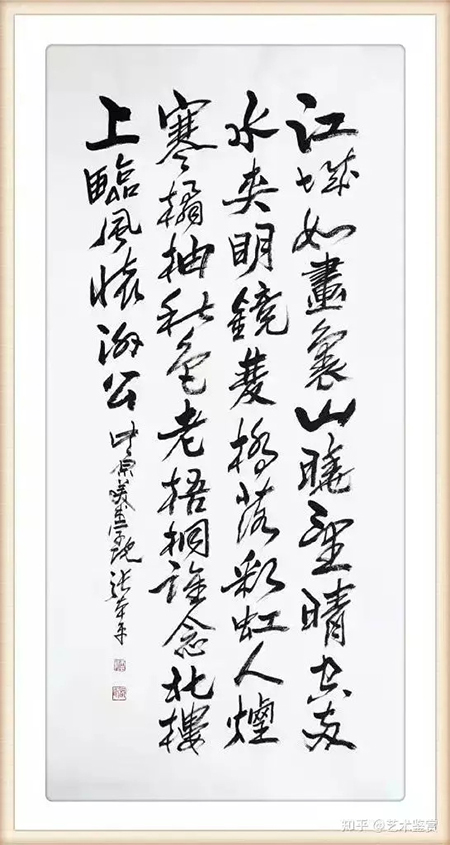 江城如畫裏山曉望晴空兩
水夾明鏡雙橋落彩虹人煙
寒橘柚秋色老梧桐誰念北樓
上臨風懷謝公 中原美术学院 张本平
知乎 @艺术鉴赏